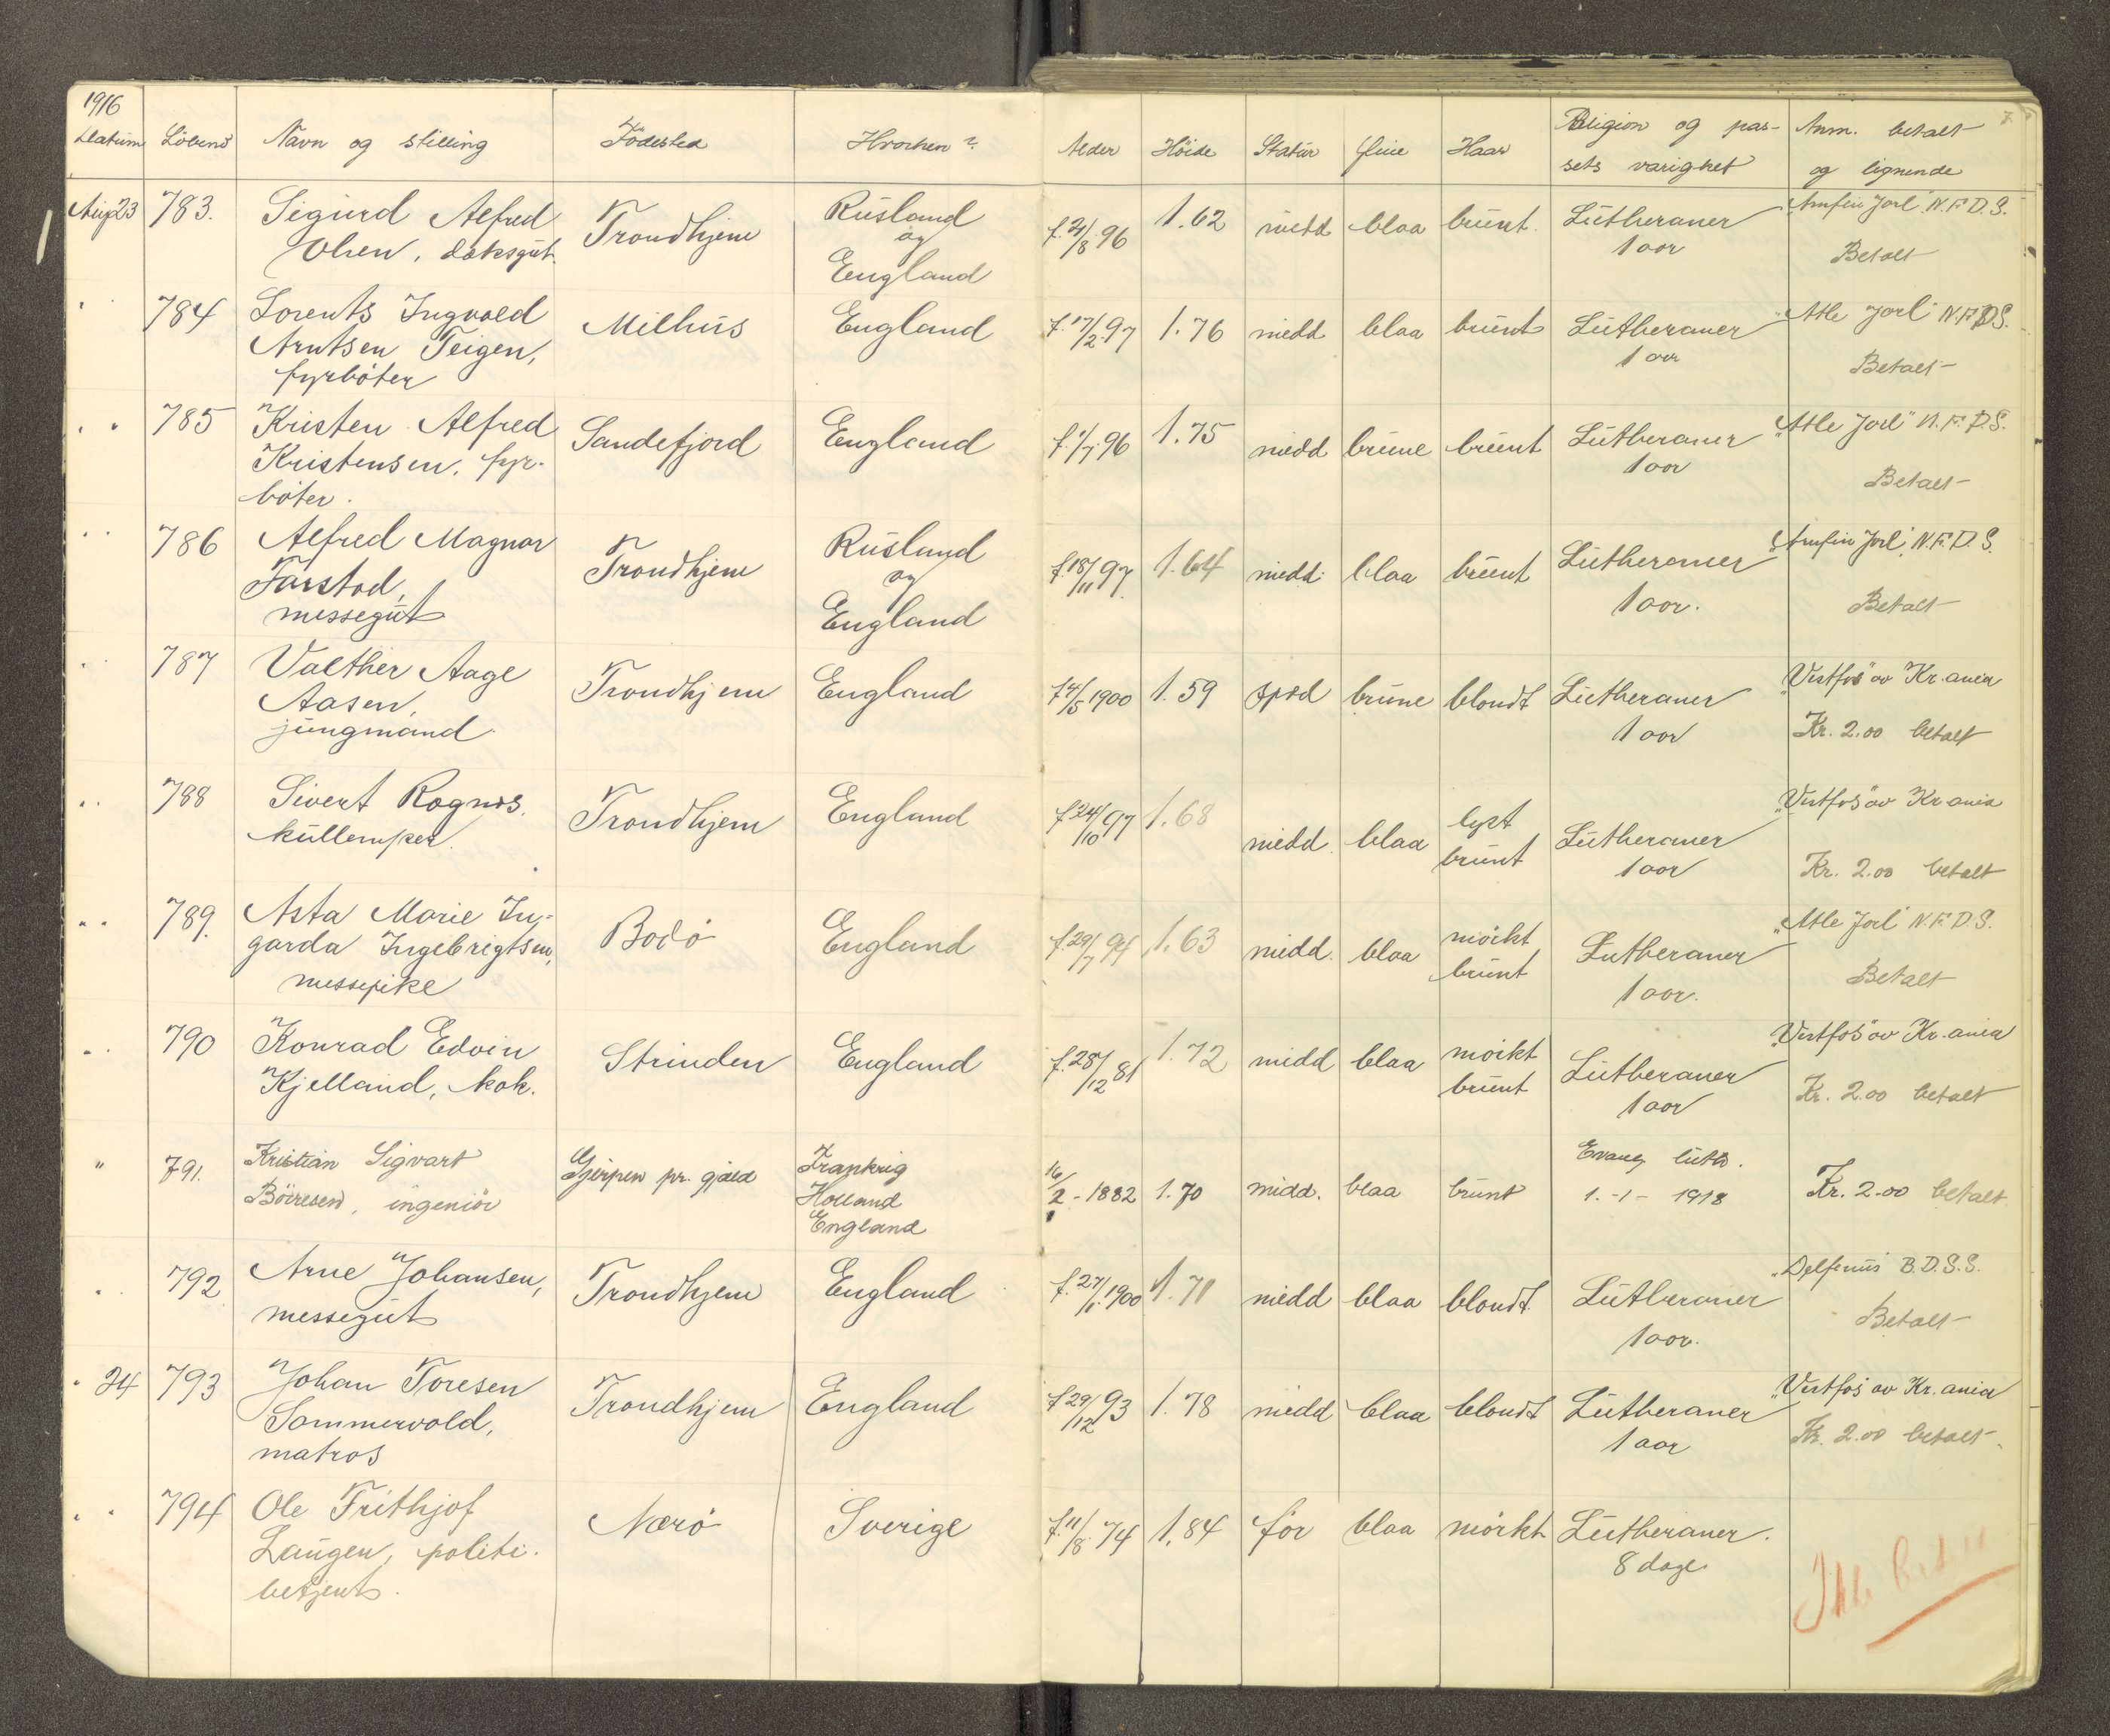 1916
Datum Löbenº Navn og stilling Födested Hvorhen? Alder Höide Statur Öine Haar Religion og pas- Anm. betalt
sets varighet og lignende
Aug 23 783. Sigurd Alfred Trondhjem Rusland f. 21/8 96 1.62 midd blaa brunt. Lutheraner "Arnfin Jarl" N.F.D.S.
Olsen, dæksgut. og 1 aar Betalt
England
" " 784 Lorents Ingvald Milhus England f. 17/2 97 1.76 midd blaa brunt Lutheraner "Atle Jarl" N.F.D.S.
Arntsen Teigen, 1 aar Betalt
fyrböter
" " 785 Kristen Alfred Sandefjord England f. 1/7 96 1.75 midd brune brunt Lutheraner "Atle Jarl" N.F.D.S.
Kristensen, fyr- 1 aar Betalt
böter.
" " 786 Alfred Magnar Trondhjem Rusland f. 18/11 97. 1.64 midd. blaa brunt Lutheraner "Arnfin Jarl" N.F.D.S.
Farstad, og 1 aar. Betalt
messegut England
" " 787 Valther Aage Trondhjem England f. 4/5 1900 1.59 spæd brune blondt Lutheraner "Vestfos" av Kr.ania
Aasen, 1 aar Kr. 2.00 betalt
jungmand
" " 788 Sivert Rognes, Trondhjem England f. 24/10 97 1.68 midd. blaa lyst Lutheraner "Vestfos" av Kr.ania
kullemper. brunt 1 aar Kr. 2.00 betalt
" " 789. Asta Marie In- Bodö England f. 29/7 94 1.63 midd. blaa mörkt Lutheraner "Atle Jarl" N.F.D.S.
garda Ingebrigtsen, brunt 1 aar. Betalt
messepike
" " 790 Konrad Edvin Strinden England f. 28/12 81 1.72 midd blaa mörkt Lutheraner "Vestfos" av Kr.ania
Kjelland, kok. brunt 1 aar Kr. 2.00 betalt
" 791. Kristian Sigvart Gjerpen pr. gjæld Frankrig 16/2 - 1882 1.70 midd. blaa brunt Evang luth. Kr. 2.00 betalt
Böiresen, ingeniör Holland 1.-1- 1918
England
" " 792 Arne Johansen, Trondhjem England f. 27/1 1900 1.71 midd blaa blondt. Lutheraner "Delfinus" B.D.S.S.
messegut 1 aar. Betalt
" 24 793 Johan Toresen Trondhjem England f. 29/12 93 1.78 midd blaa blondt Lutheraner "Vestfos" av Kr.ania
Sommervold, 1 aar Kr. 2.00 betalt
matros
" " 794 Ole Frithjof Nærö Sverige f. 11/8 74 1.84 för blaa mörkt Lutheraner.
Laugen, politi- 8 dage
betjent. Ikke betalt